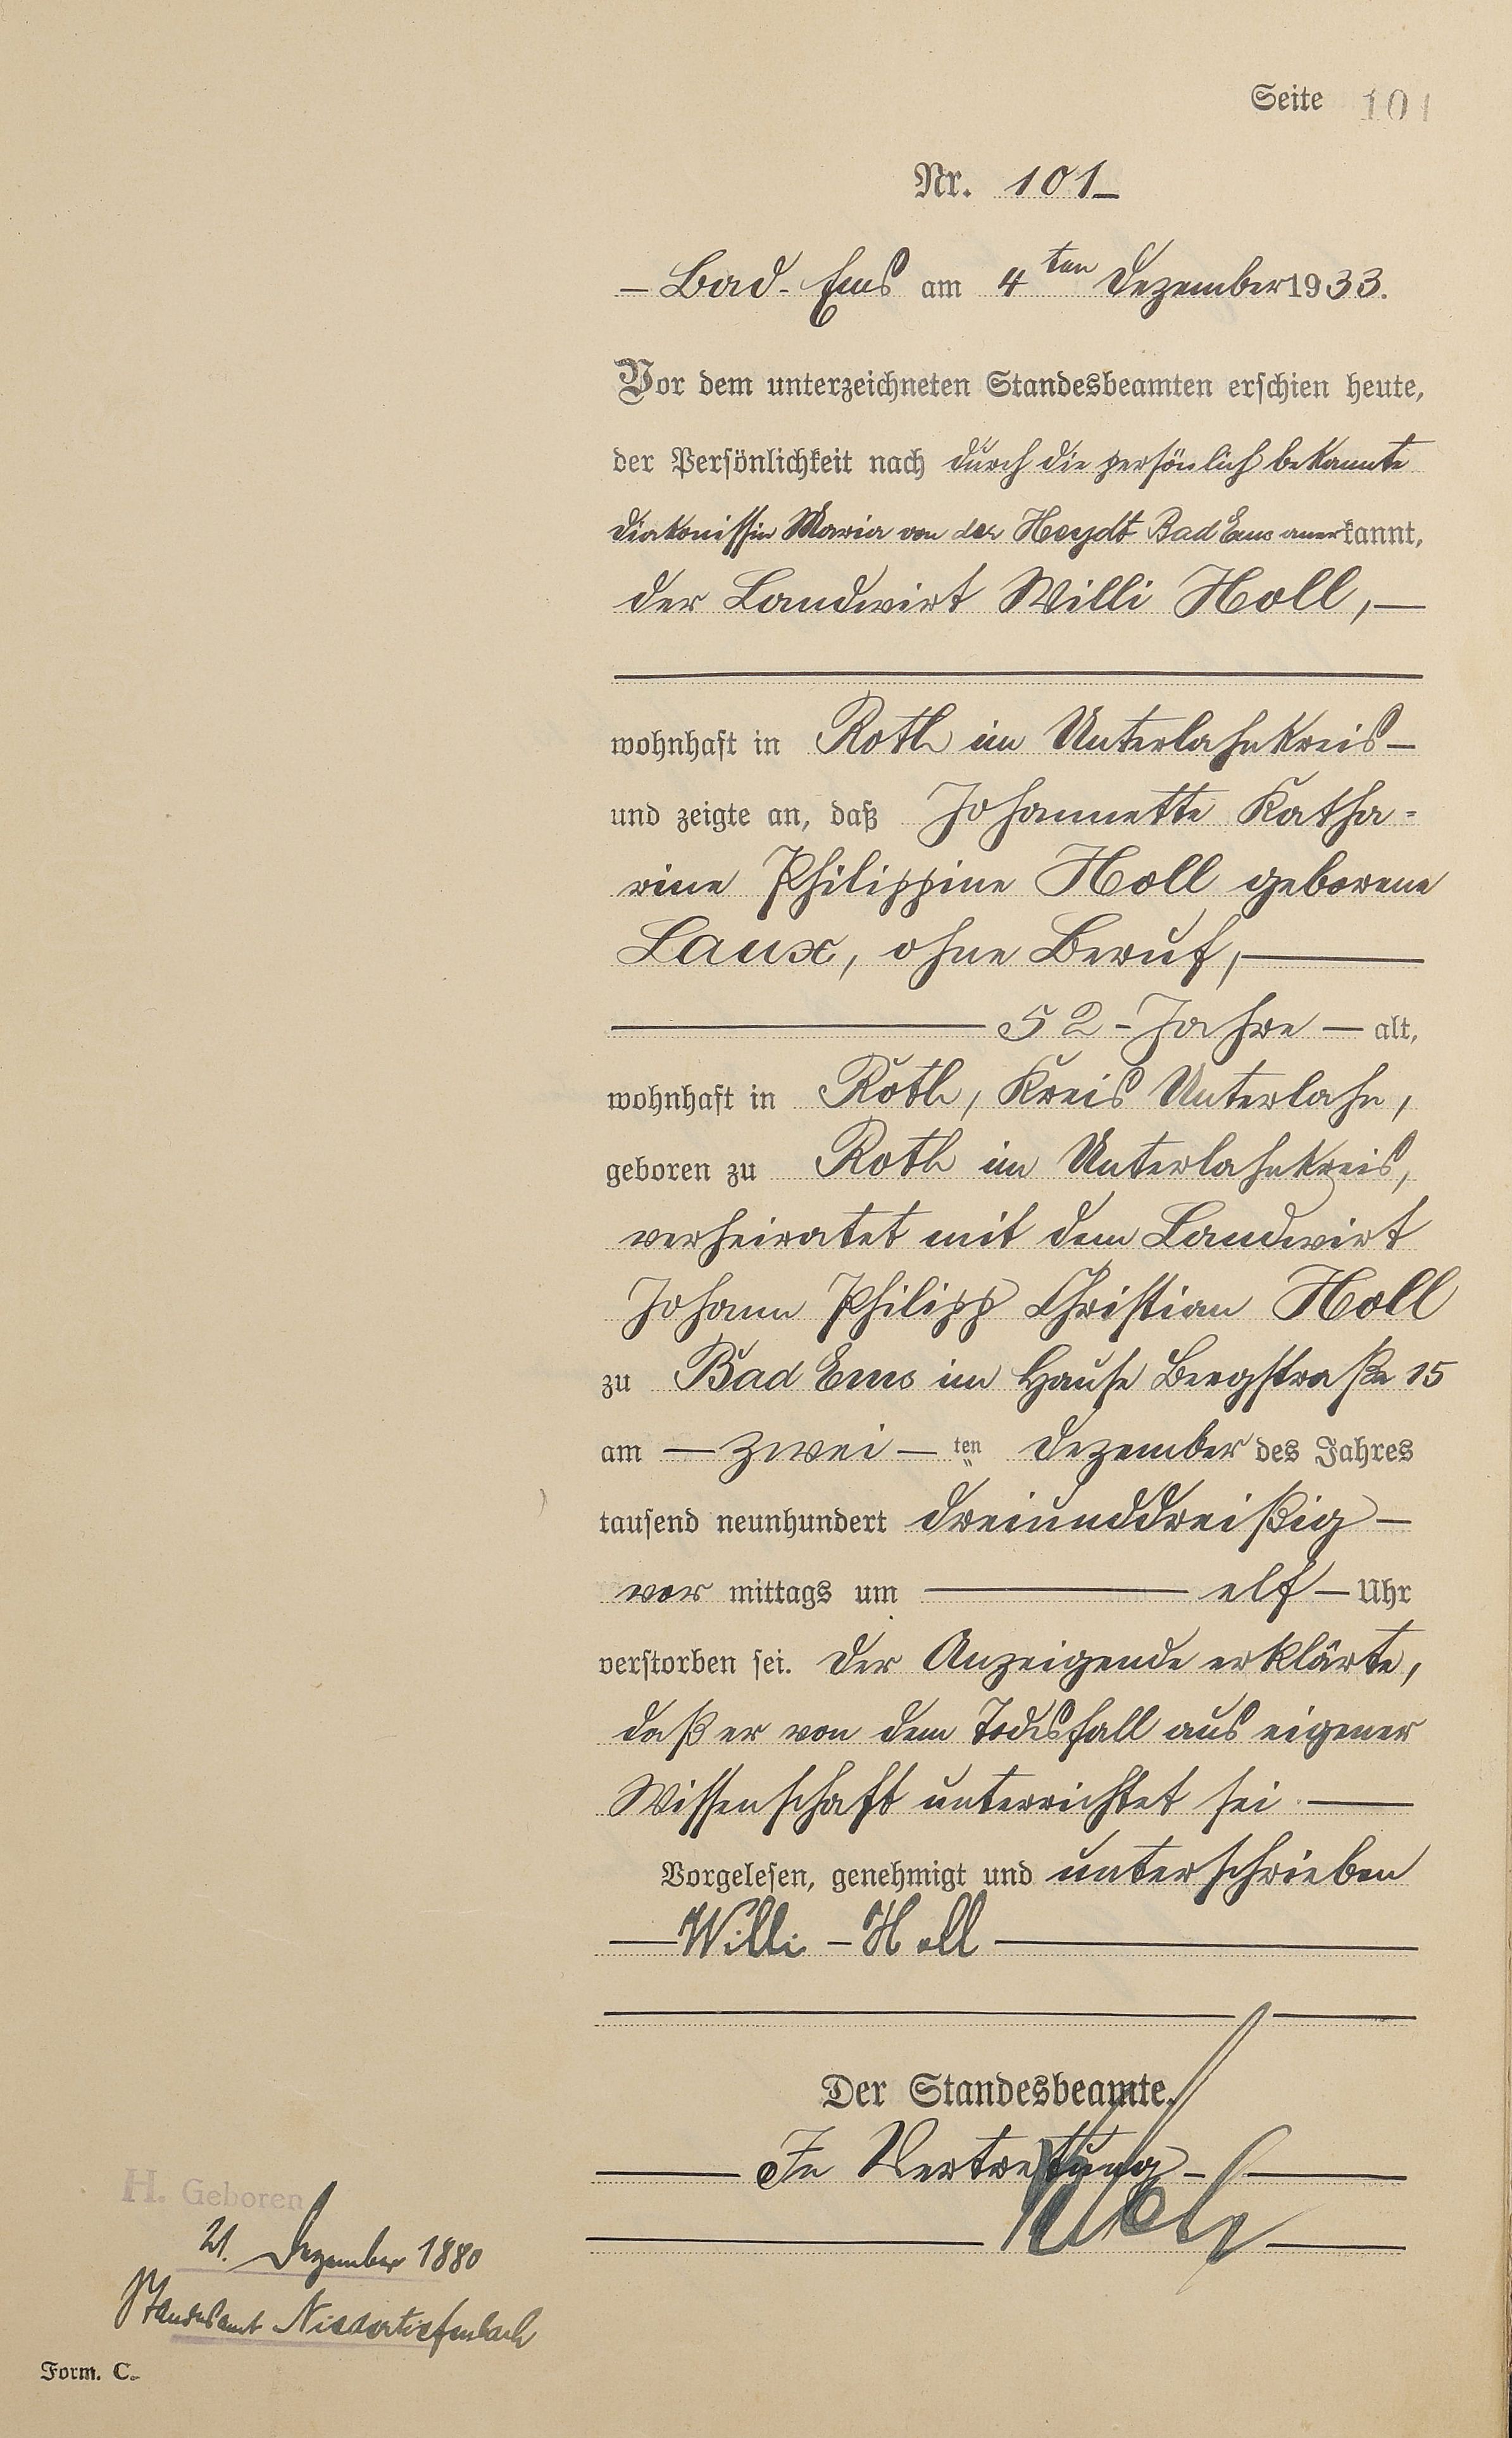 Seite 101
Nr. 101
Bad-Ems am 4ten Dezember 1933.
Vor dem unterzeichneten Standesbeamten erschien heute,
der Persönlichkeit nach durch die persönlich bekannte
Diakonissin Maria von der Heydt Bad Ems anerkannt,
der Landwirt Willi Holl,
wohnhaft in Roth im Unterlahnkreis
und zeigte an, daß Johannette Katha-
rine Philippine Holl geborene
Laux, ohne Beruf,
52-Jahre alt,
wohnhaft in Roth, Kreis Unterlahn,
geboren zu Roth im Unterlahnkreis,
verheiratet mit dem Landwirt
Johann Philipp Christian Holl
zu Bad Ems im Hause Bergstraße 15
am zwei ten Dezember des Jahres
tausend neunhundert dreiunddreißig
vor mittags um elf Uhr
verstorben sei. Der Anzeigende erklärte,
daß er von dem Todesfall aus eigener
Wissenschaft unterrichtet sei
Vorgelesen, genehmigt und unterschrieben
Willi Holl
Der Standesbeamte.
In Vertretung
H. Geboren
21. Dezember 1880
Standesamt Niedertiefenbach
Form. C.